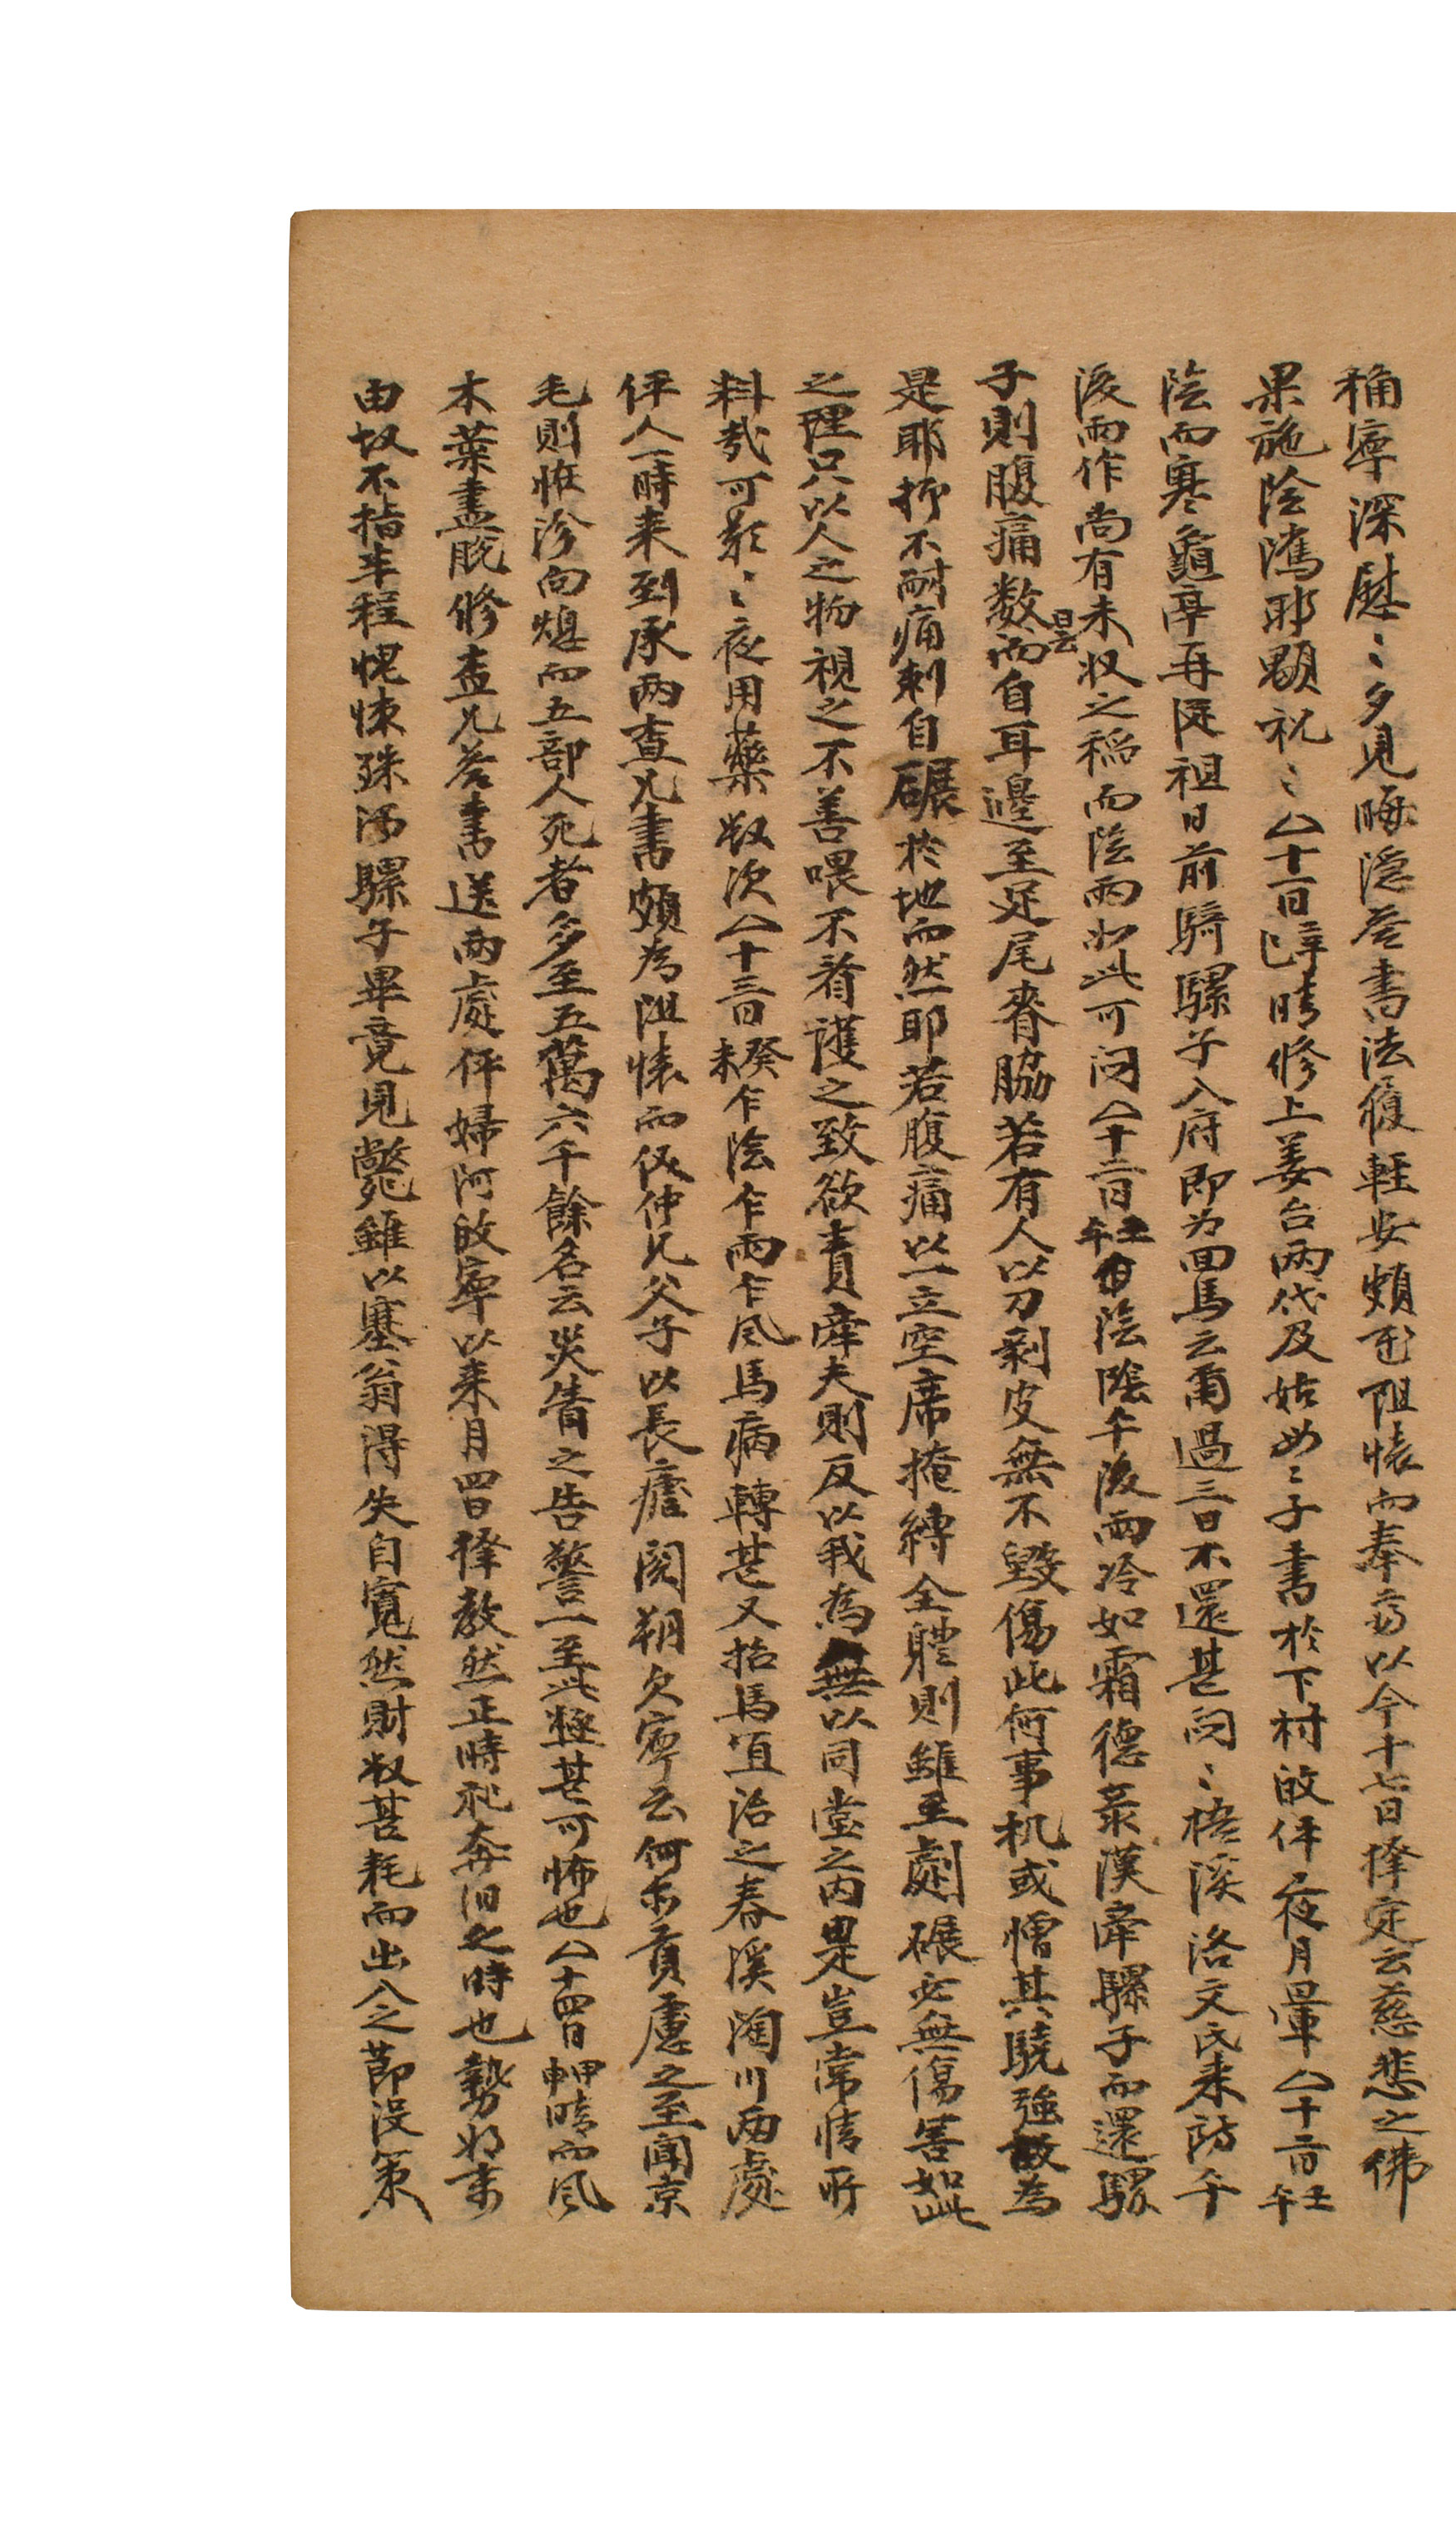 稱寧深慰〻夕見晦隱答書法履輕安頗阻懷而奉高以今十七日擇定云慈悲之佛
果施陰隲耶顒祝〻△十一日辛巳晴修上姜台兩代及姑女〻子書於下村的伻夜月暈△十二日壬午
陰而寒龜亭再從祖日前騎騾子入府即为回馬云爾過三日不還甚悶〻梧溪洛文氏来訪午
後雨作尚有未収之稲而陰雨如此可悶△十二日壬午陰陰午後雨冷如霜德彔漢牽騾子而還騾
子則腹痛数曇而自耳邊至足尾脊脇若有人以刀剝皮無不毀傷此何事机或憎其驍強故為
是耶抑不耐痛刺自碾於地而然耶若腹痛以一立空席掩縛全軆則雖至劇碾必無傷害如此
之理只以人之物視之不善喂不着護之致欲責牽夫則反以我為無以同堂之內畢是豈常情所
料哉可歎〻夜用藥数次△十三日癸未乍陰乍雨乍风馬病轉甚又招馬眞治之春溪海川両處
伻人一時来到承两査兄書頗为阻懷而伋仲兄父子以長瘧闵朔欠寧云何亦貢慮之至聞京
毛則恠沴向熄而五部人死者多至五萬六千餘名云災眚之告警一至此極甚可怖也△十四日甲申晴而风
木葉盡脫修査兄答書送两處伻婦阿的寧以来月四日擇教然正時祀奔汨之時也勢如束
由故不指半程愰悚殊深騾子畢竟見斃雖以塞翁得失自寬然財数甚耗而出入之節没策